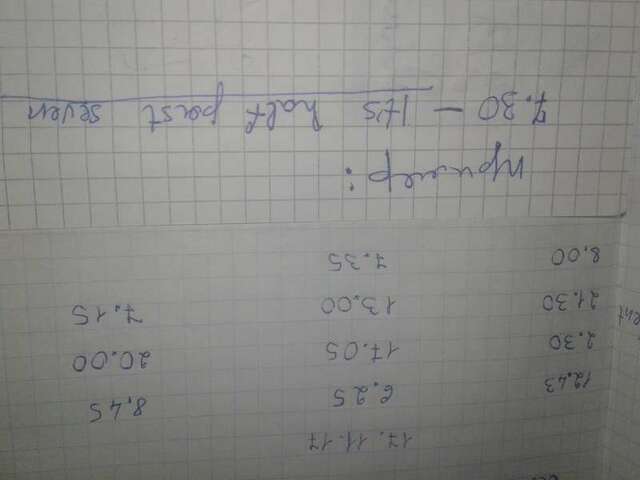 17.11.17
12.43 6.25 8,45
2.30 17.05 20.00
21.30 13.00 7.15
8,00 7.35
Пример:
7.30 – It's half past seven